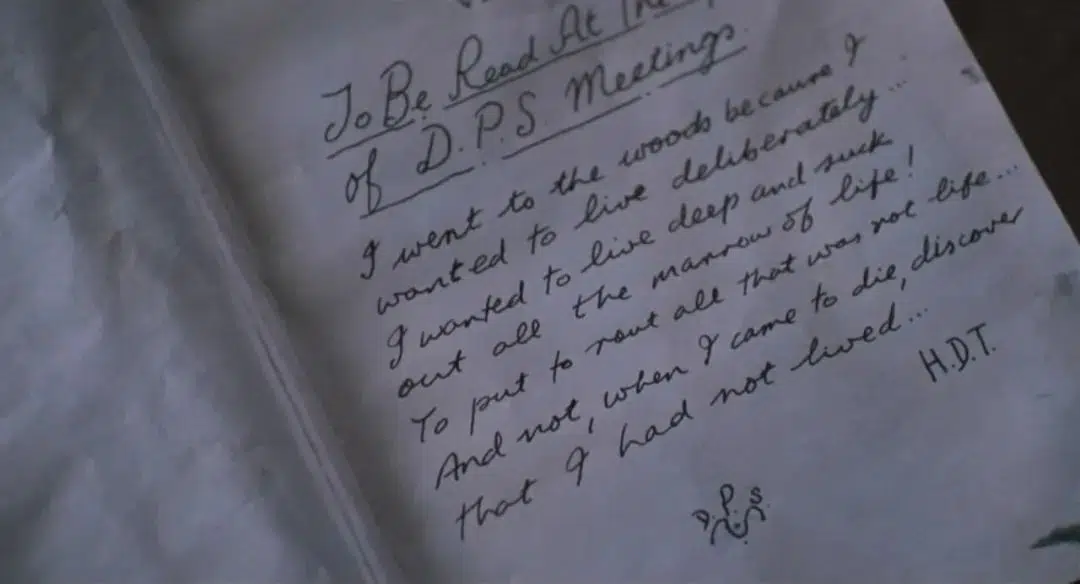 To Be Read At The
of D.P.S. Meetings
I went to the woods because I
wanted to live deliberately...
I wanted to live deep and suck
out all the marrow of life!
To put to rout all that was not life...
And not, when I came to die, discover
that I had not lived...
H.D.T.
D P S